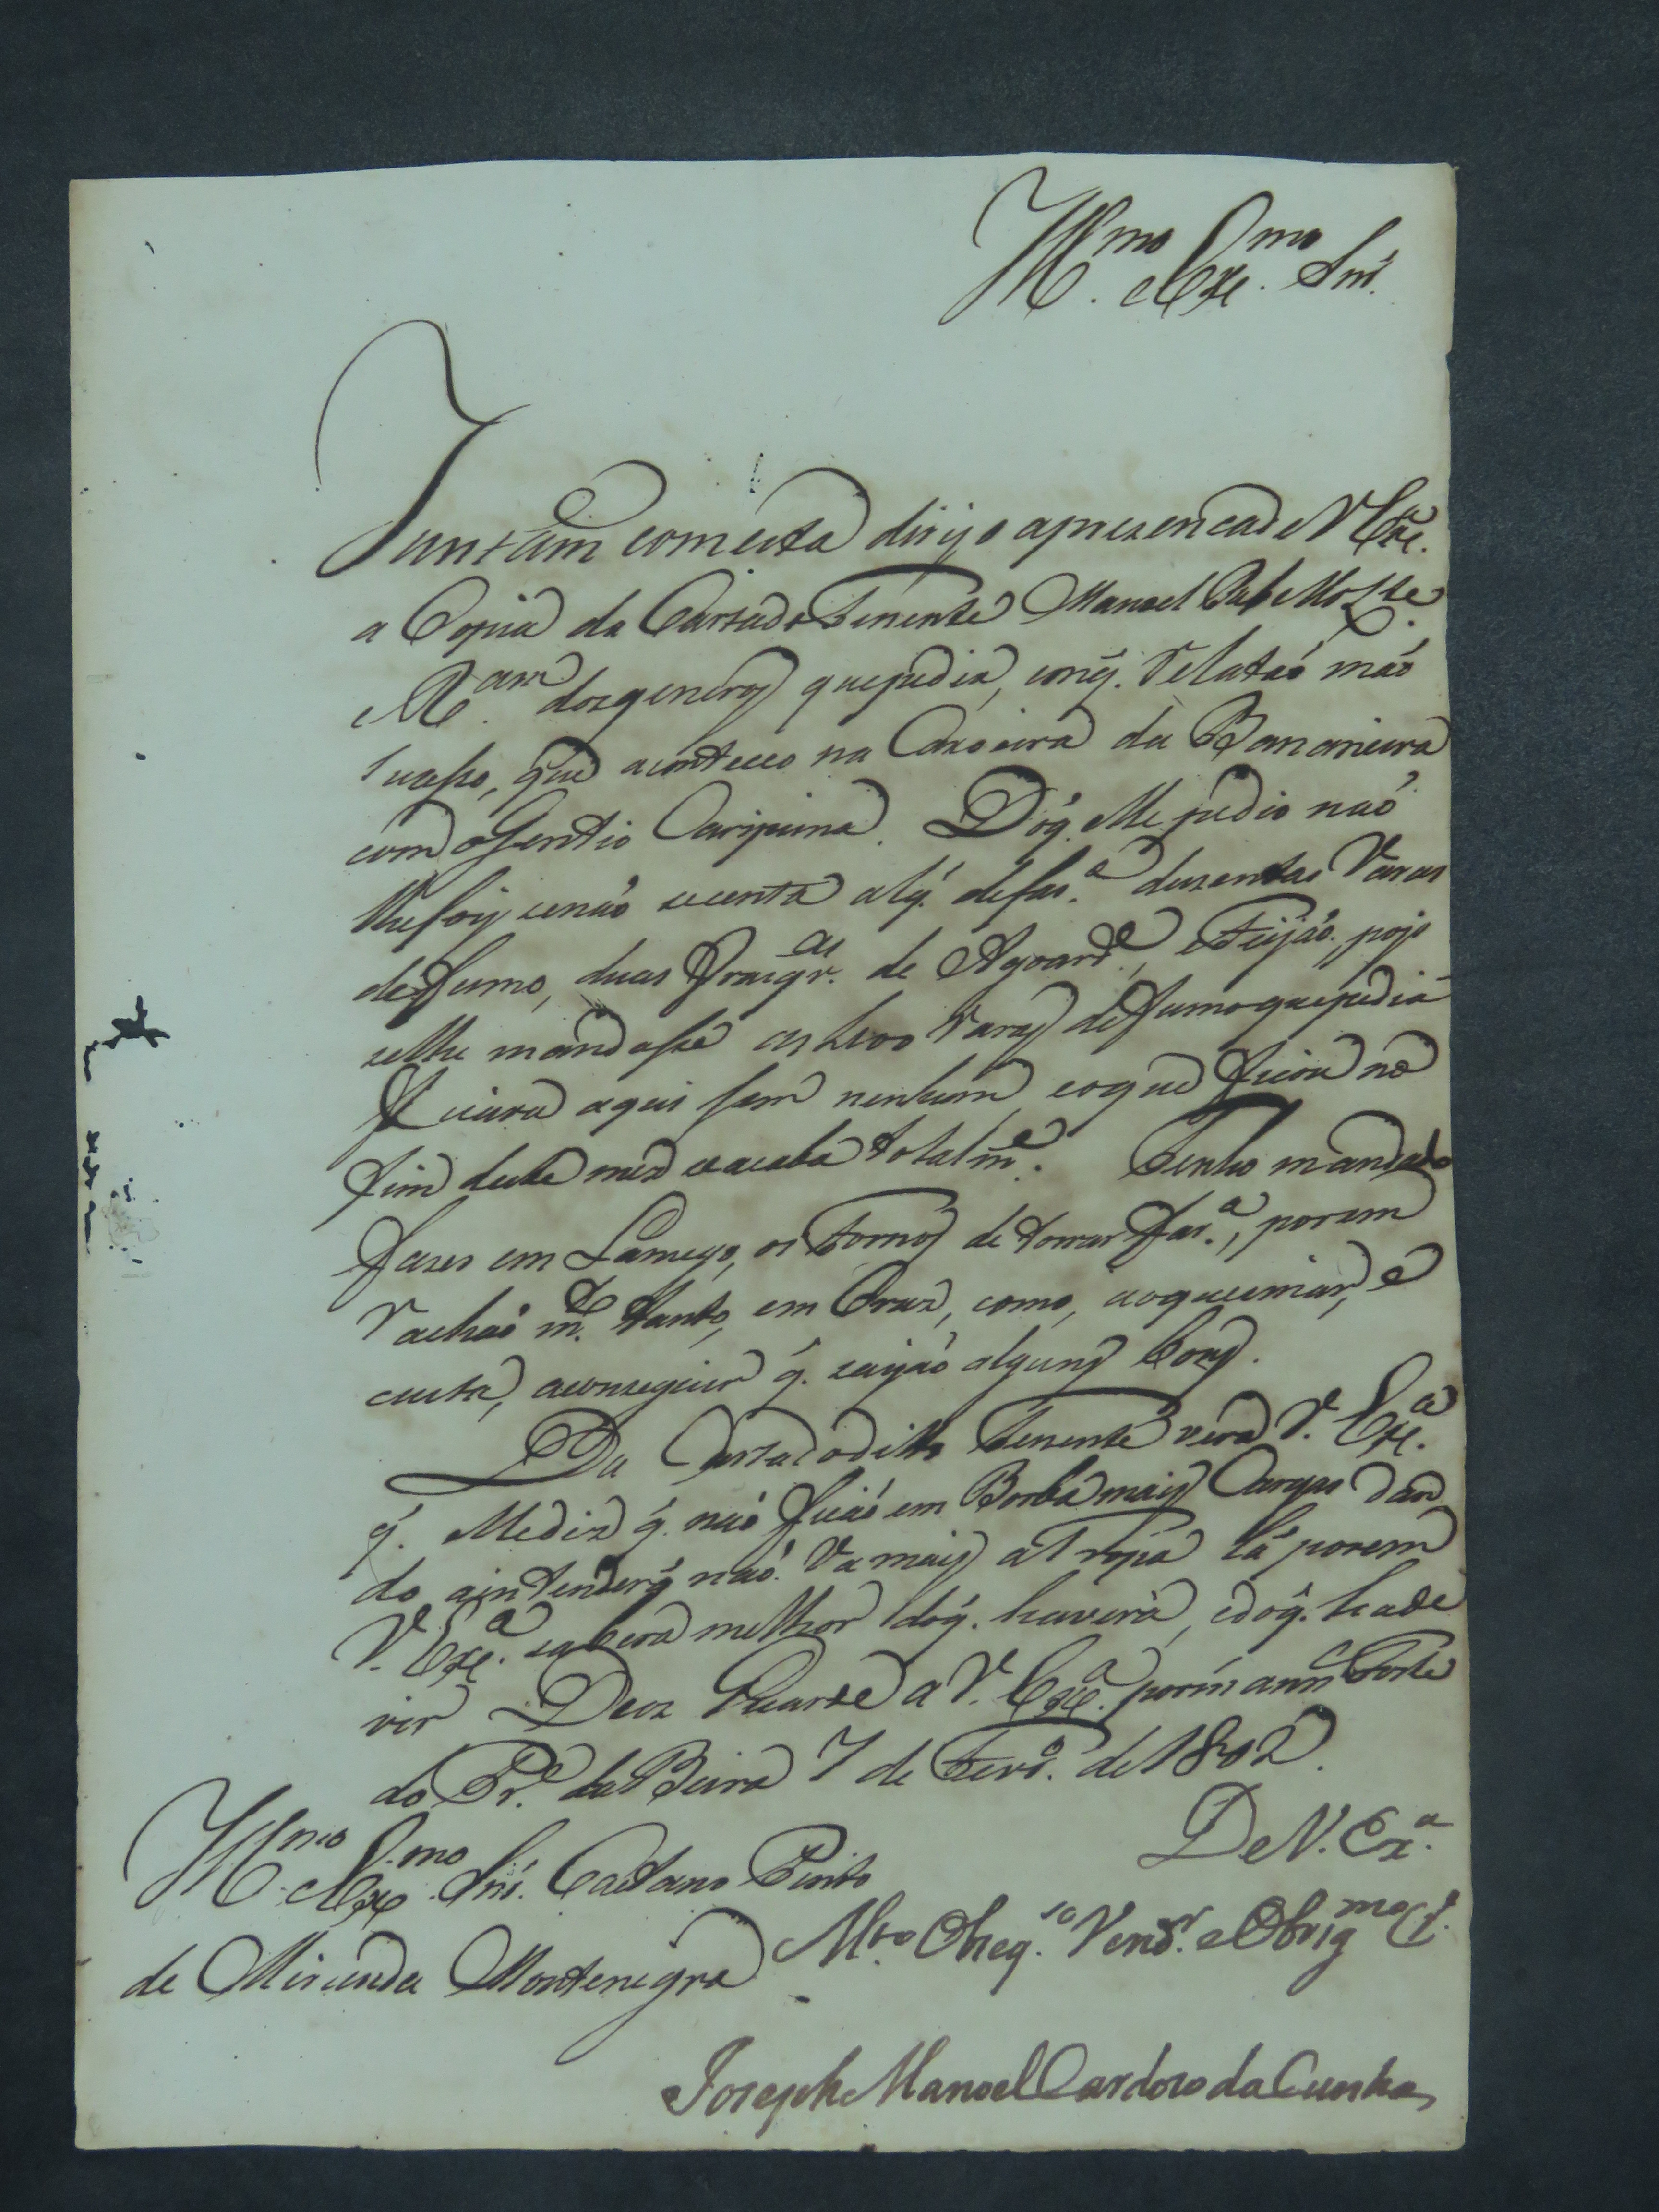 Ill.mo e Exc.mo Snr.
Juntam comesta dirijo apresencade V Exc.a
a Copia da Carta do Tenente Manoel
dosgeneros quepedia, emq. relata o máo
sucesso, que aconteceo na Caxoeira da Bananeira
com o Gentio Caripuna. Doq. Me pedio naó
lhefoy senaó secenta alq. defar.a duzentas Varas
defumo, duas Frasqr.as de Agoard.e, e Feijaó, pojs
selhe mandasse as varas defumoquepedia
ficava aqui sem nenhum, eoque ficou no
fim deste mez seacaba totalm.e. Tenho mandado
fazer em Lamego, os Fornos de torrar far.a, porem
rachaó m.to tanto, em Cruz, como, aoqueimar, e
custa, aconseguir q. sayaó alguns bons.
Da Carta do ditto Tenente verá V. Exc.a
q. Mediz q. naó ficaó em Borba mais Cargas dan
do aintenderq naó Vamais a Tropa lá porem
V. Exc.a saberá melhor doq. haverá, edoq. hade
vir Deoz Guarde a V. Exc.a porm ann Forte
do Pr.e da Beira 7 de Fevr.o de 1802.
De V. Ex.a
Ill.mo e Exc.mo Snr. Caetano Pinto
de Miranda Montenegro
M.to Obzeq.so Vend.r e Obrig.mo C.
Joseph Manoel Cardoso da Cunha